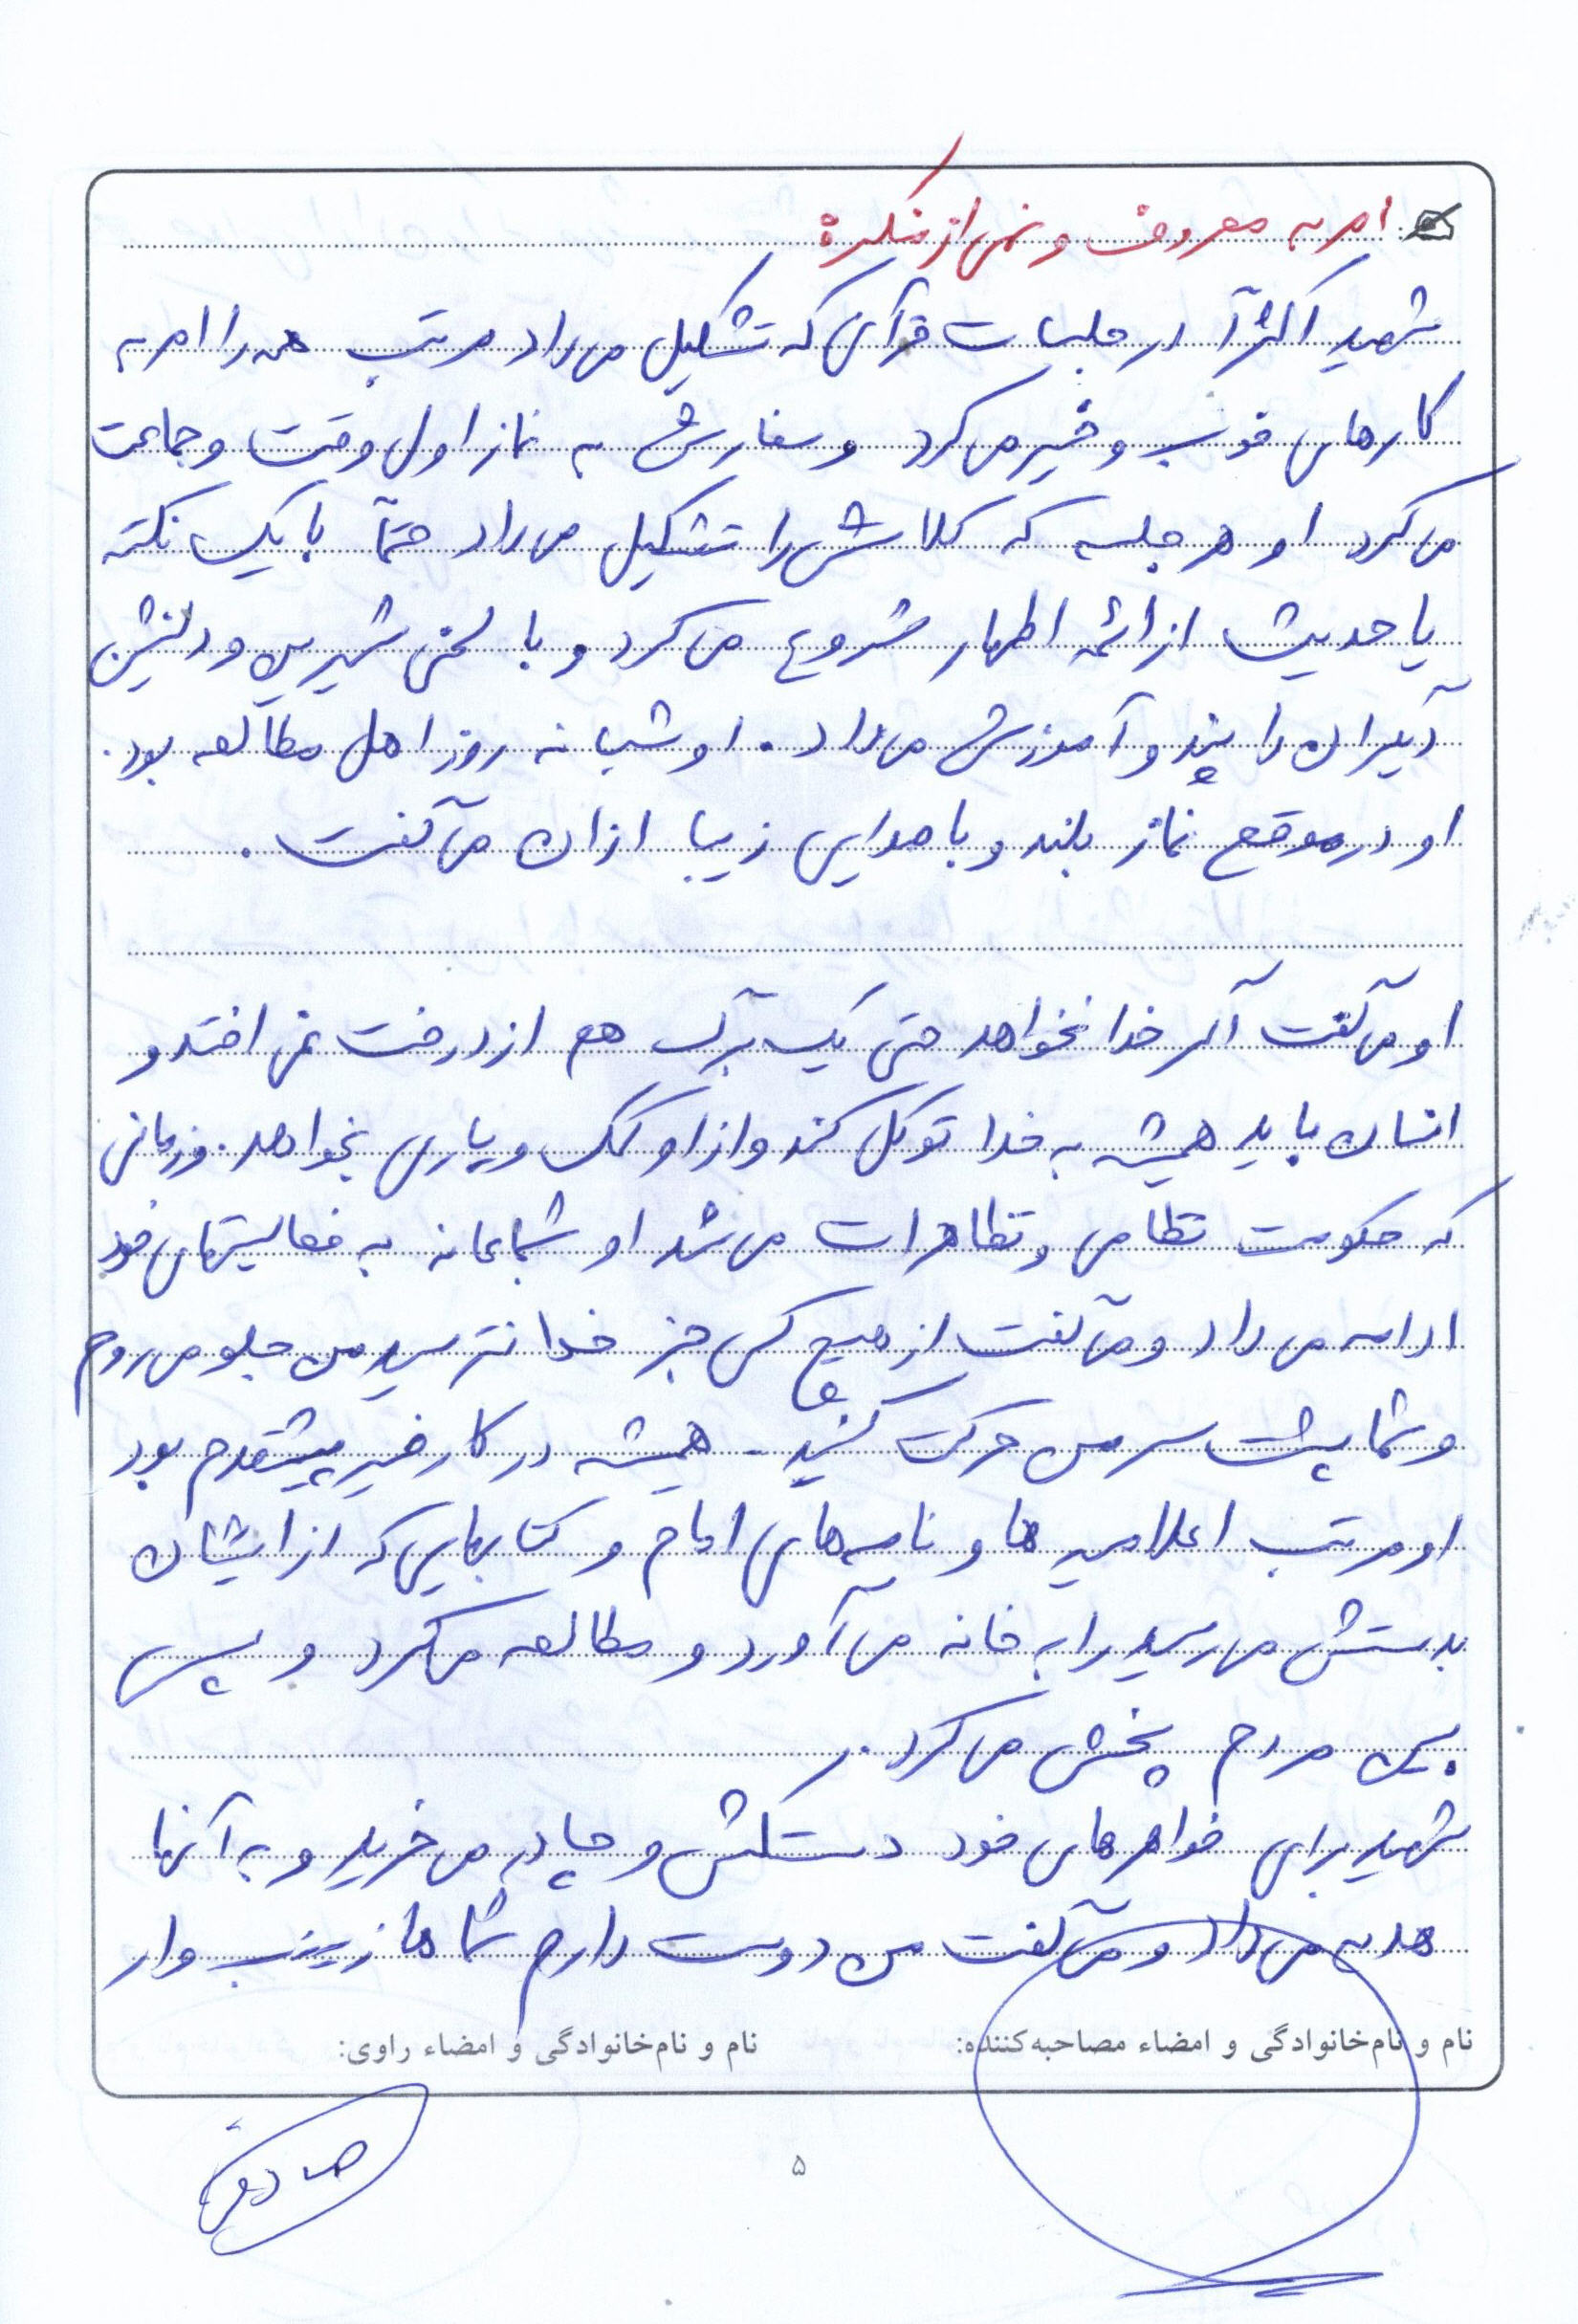 امر به معروف و نهی از منکر:
شهید اکثراً در جلسات قرآنی که تشکیل می داد مرتب همه را امر به
کارهای خوب و خیر می کرد و سفارش به نماز اول وقت و جماعت
می کرد او هر جلسه که کلاسش را تشکیل می داد حتماً با یک نکته
یا حدیث از ائمه اطهار شروع می کرد و با لحنی شیرین و دلنشین
دیگران را پند و آموزش می داد. او شبانه روز اهل مطالعه بود.
او در موقع نماز بلند و با صدایی زیبا اذان می گفت.
او می گفت اگر خدا نخواهد حتی یک برگ هم از درخت نمی افتد و
انسان باید همیشه به خدا توکل کند و از او کمک و یاری بخواهد. و زمانی
که حکومت نظامی و تظاهرات می شد او شجاعانه به فعالیتهای خود
ادامه می داد و می گفت از هیچ کس جز خدا نترسید من جلو می روم
و شما پشت سر من حرکت کنید. همیشه در کار خیر پیشقدم بود
او مرتب اعلامیه ها و نامه های امام و کتابهایی که از ایشان
بدستش می رسید را به خانه می آورد و مطالعه می کرد و سپس
بین مردم پخش می کرد.
شهید برای خواهرهای خود دستکش و چادر می خرید و به آنها
هدیه می داد و می گفت من دوست دارم شماها زینب وار
نام و نام‌خانوادگی و امضاء مصاحبه‌کننده:
نام و نام‌خانوادگی و امضاء راوی:
صادقی
۵